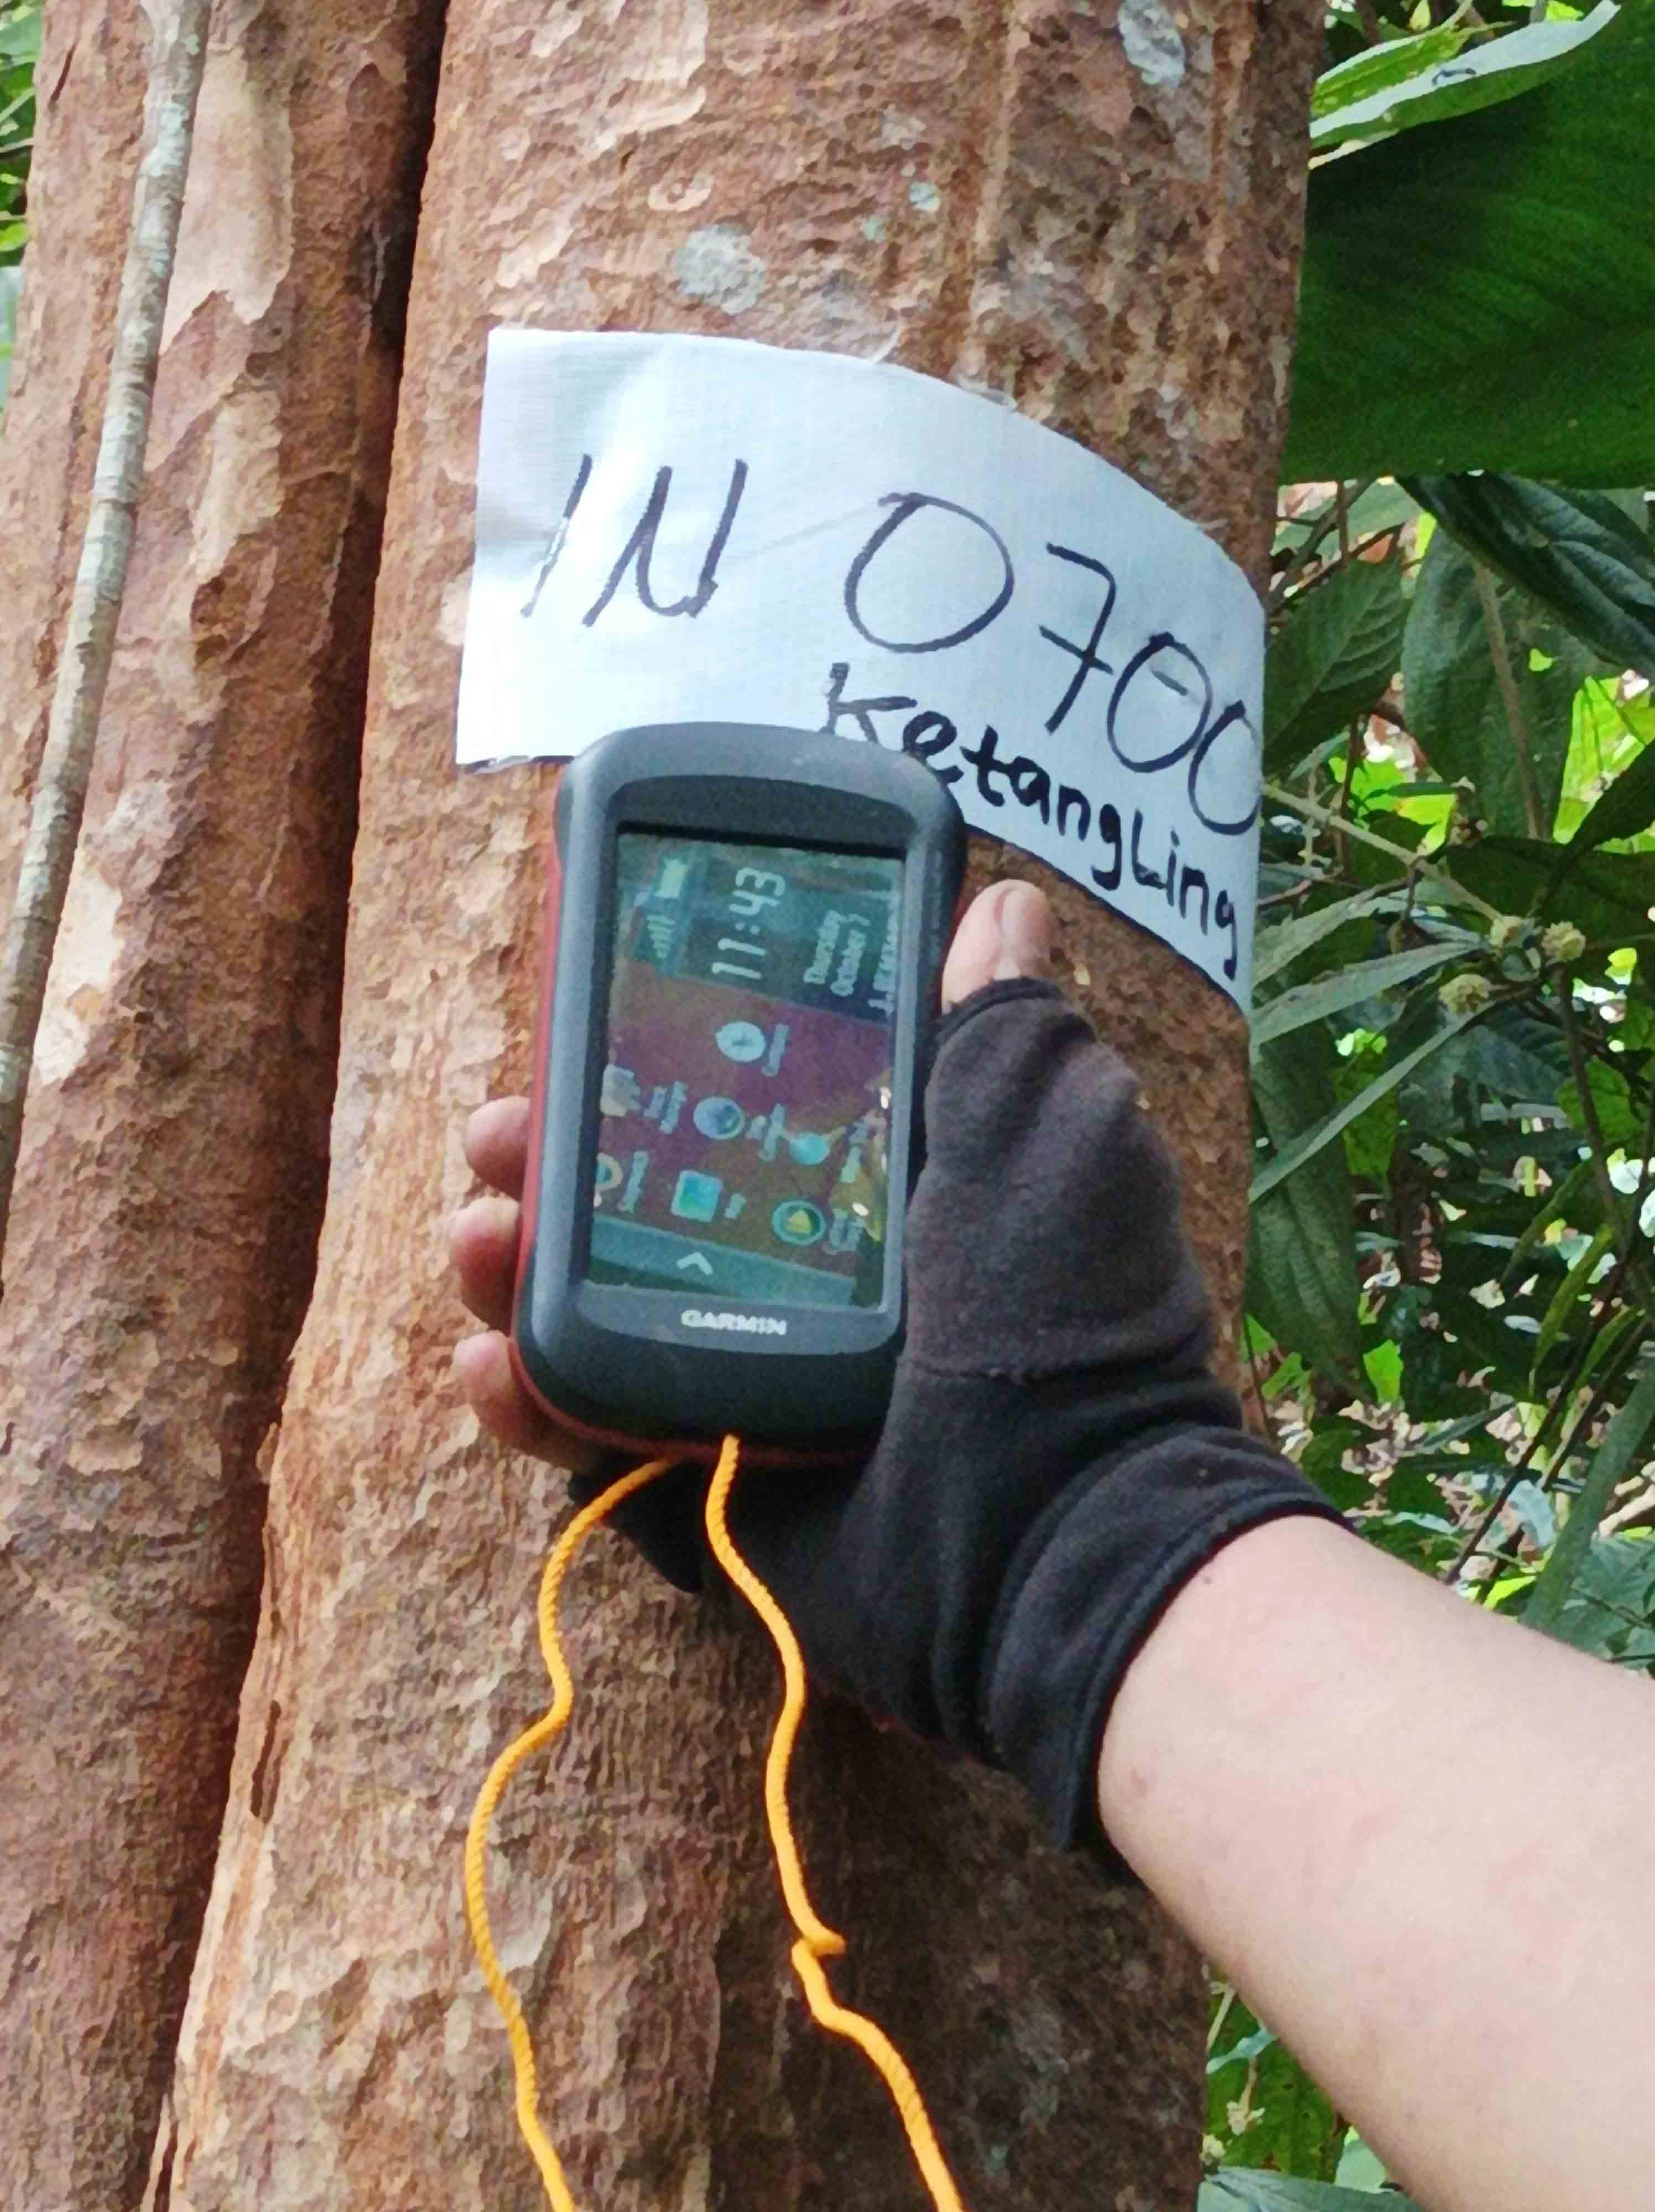 IN 0700
KetangLing
11:43
Thursday
October 7
GARMIN